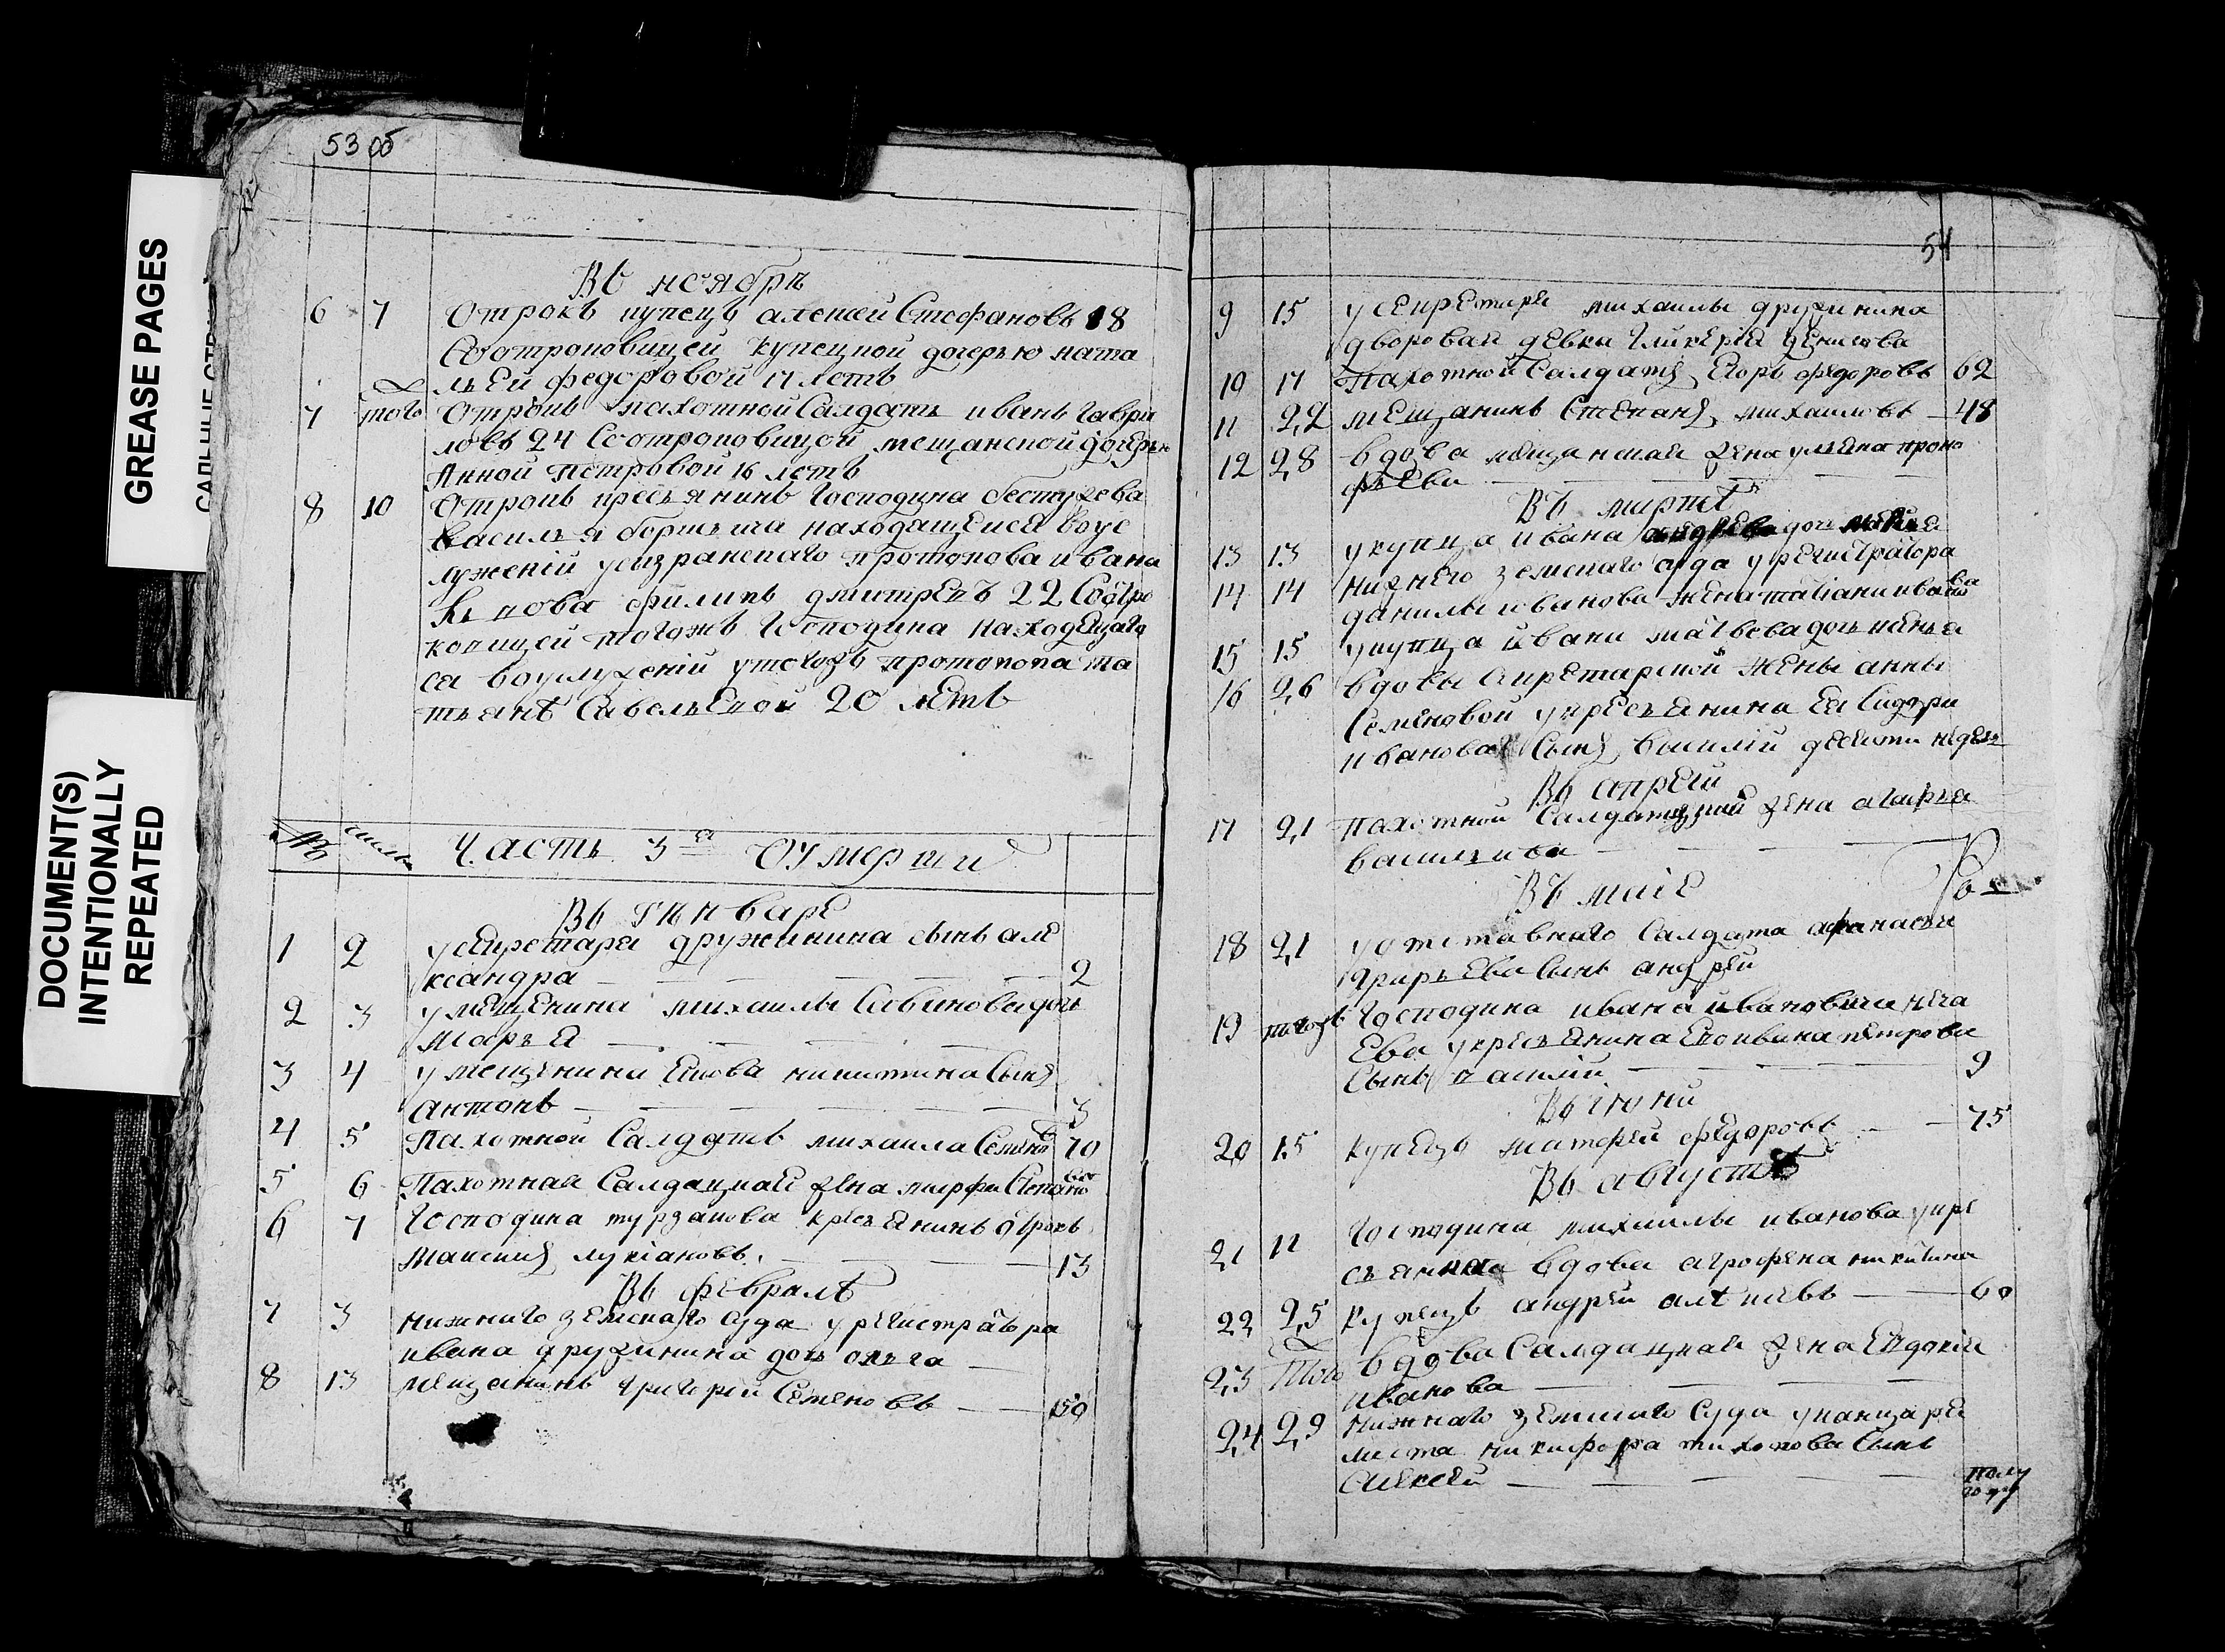 GREASE PAGES
DOCUMENT(S)
INTENTIONALLY
REPEATED
53 об
Въ ноябрѣ
6 7 Отрокъ купецъ алексей Стефановъ 18
Соотроковицей купецкой дочерью ната
льей федоровой 17 летъ
7 того Отрокъ пахотной Салдатъ иванъ гаври
ловъ 24 Соотроковицой мещанской дочерью
Анной петровой 16 летъ
8 10 Отрокъ кресьянинъ Господина бестужева
василья находящейся воус
лужении усызранскаго протопопа ивана
филипъ 22 Соотро
ковицей тогожъ Господина находещаго
са воуслужении утогожъ протопопа та
тьянъ Савельевой 20 летъ
№ число Часть 3я Оумерши
Въ генваре
1 2 усекретаря дружинина сынъ але
ксандра 2
2 3 умещенина михаилы Савинова дочь
Марья
3 4 умещенина никитина Сынъ
антонъ 3
4 5 Пахотной Салдатъ михаила Семеновъ 70
5 6 Пахотная Салдацкая жена марфа Степанова
6 7 Господина турзанова кресьянинъ отрокъ
Максимъ лукiановъ 13
Въ февралѣ
7 3 нижнаго земскаго суда урегистратора
ивана дружинина дочь ольга
8 13 мещанинъ григорей Семеновъ 50
54
9 15 усекретаря михаилы дружинина
дворовай девки гликерiя
10 17 Пахотной Салдатъ Егоръ федоровъ 62
11 22 мещанинъ Степанъ михаиловъ 48
12 28 вдова мещанская жена ульяна проко
фьева
Въ мартѣ
13 13 укупца ивана дочь
14 14 нижнего земскаго суда урегистратора
данилы иванова жена татiана иванова
15 15 укупца ивана матвеева дочь
16 26 вдовы секретарской жены анны
Семеновой укресьянина Ея Сидора
иванова Сынъ василiй десяти недель
Въ апрели
17 21 Пахотной Салдатской жена агафья
васильива
Въ маiе
18 21 уотставнаго Салдата афанасья
Григорьева Сынъ андрей
19 тогожъ Господина ивана ивановича
ева укресьянина Его ивана петрова
Сынъ василiй 9
Въ iюни
20 15 купецъ матфей федоровъ 75
Въ августѣ
21 11 Господина михаилы иванова укре
сьянина вдова агрофена никитина
22 25 купецъ андрей алѣ 60
23 Того вдова Салдацкая жена Евдокiя
иванова
24 29 нижнаго земскаго Суда уканцеле
листа никифора тихонова Сынъ
Алексей полу
году